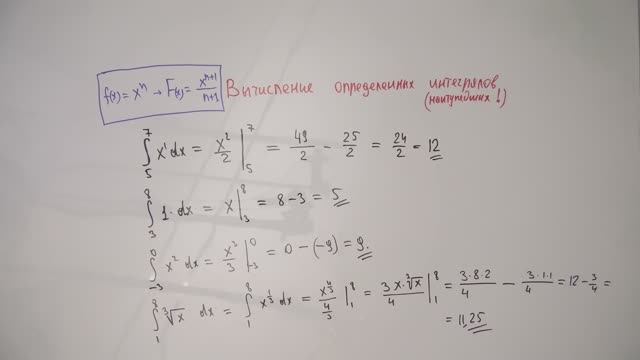 f(x) = xⁿ → F(x) = xⁿ⁺¹/n+1
Вычисление определенных интегралов
(наитупейших!)
∫₅⁷ x¹dx = x²/2 |₅⁷ = 49/2 − 25/2 = 24/2 = 12
∫₃⁸ 1·dx = x|₃⁸ = 8−3 = 5
∫₋₃⁰ x² dx = x³/3 |₋₃⁰ = 0 − (−9) = 9.
∫₁⁸ ∛x dx = ∫₁⁸ x^(1/3) dx = x^(4/3)/(4/3) |₁⁸ = 3x·∛x/4 |₁⁸ = 3·8·2/4 − 3·1·1/4 = 12 − 3/4 =
= 11,25